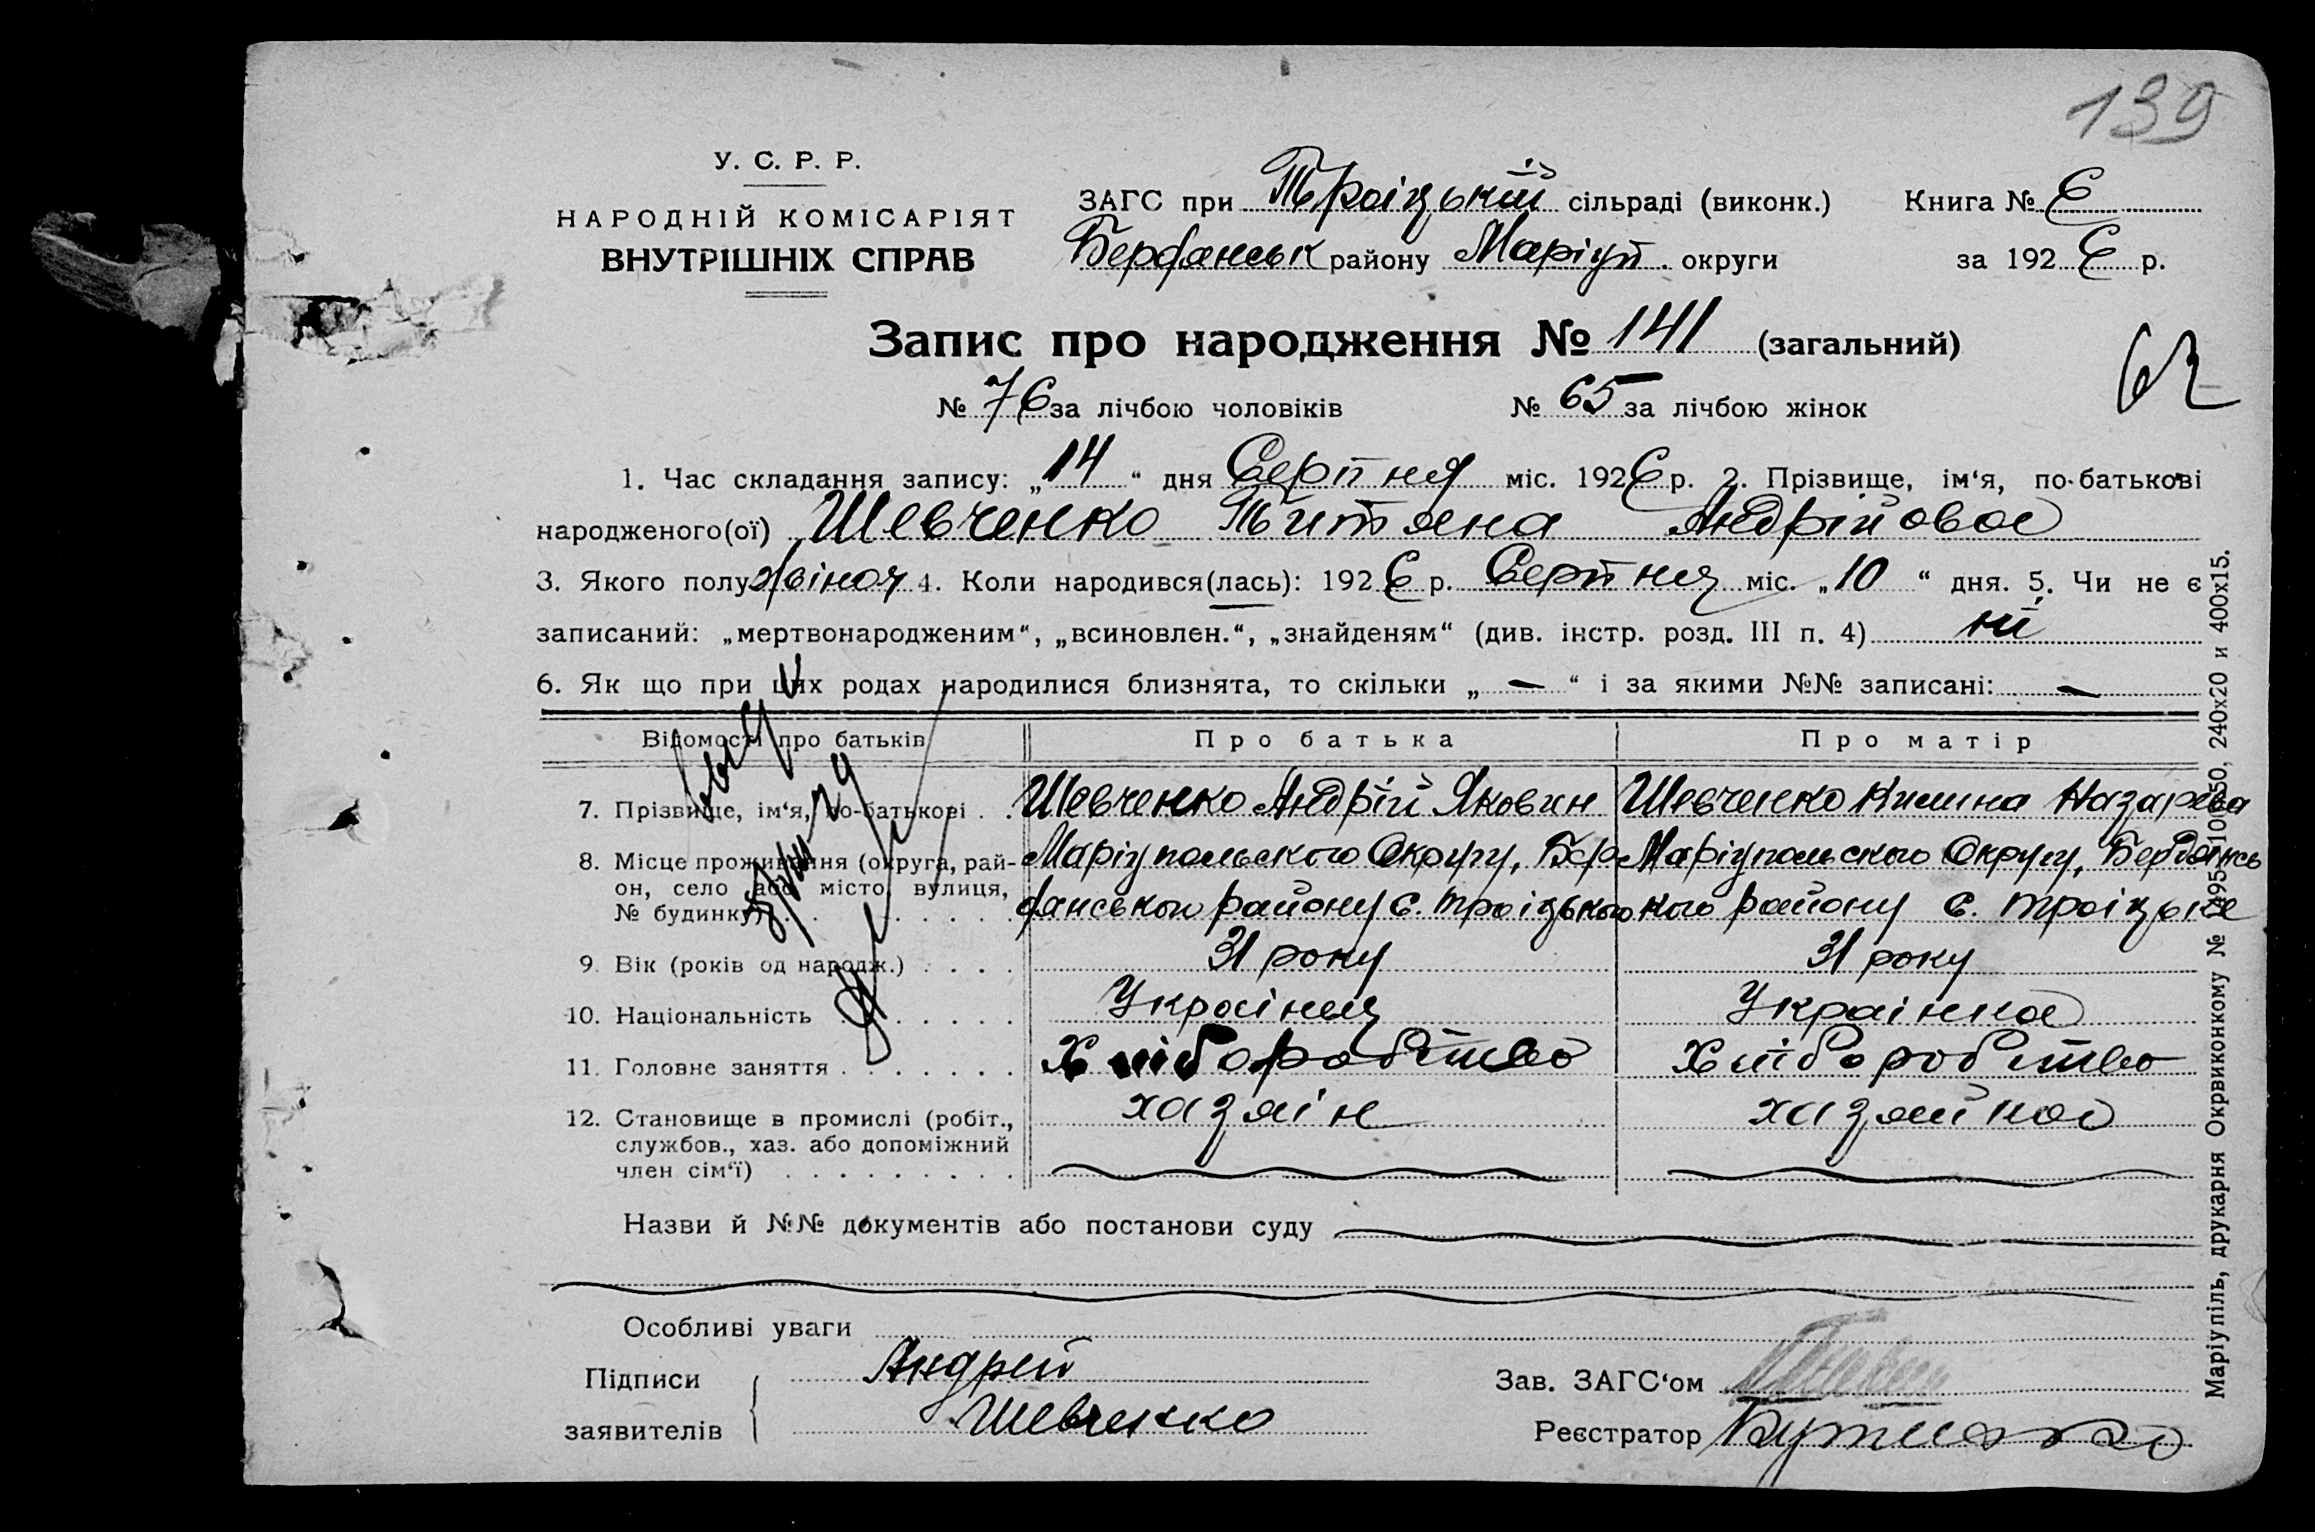 139
У. С. Р. Р.
НАРОДНІЙ КОМІСАРІЯТ
ВНУТРІШНІХ СПРАВ
ЗАГС при Троіцькій сільраді (виконк.) Книга № 6
Бердянськ району Маріуп. округи за 192 6 р.
Запис про народження № 141 (загальний)
62
№ 76 за лічбою чоловіків № 65 за лічбою жінок
1. Час складання запису: „ 14 “ дня Серпня міс. 192 6 р. 2. Прізвище, ім‘я, по-батькові
народженого(ої) Шевченко Титяна Андрійовна
3. Якого полу жіноч 4. Коли народився(лась): 192 6 р. Серпня міс. „ 10 “ дня. 5. Чи не є
записаний: „мертвонародженим“, „всиновлен.“, „знайденям“ (див. інстр. розд. III п. 4) ні
6. Як що при цих родах народилися близнята, то скільки „ — “ і за якими №№ записані: —
Відомості про батьків Про батька Про матір
7. Прізвище, ім‘я, по-батькові . . Шевченко Андрій Яковин Шевченко Килина Назарова
8. Місце проживання (округа, рай- Маріупольского Округу, Бер Маріупольского Округу, Бердянсь
он, село або місто, вулиця, дянського району с. Троіцького кого району с. Троіцьке
№ будинку) . . . . . . .
9. Вік (років од народж.) . . . . 31 року 31 року
10. Національність . . . . . Українец Українка
11. Головне заняття . . . . . . . Хліборобство Хліборобство
12. Становище в промислі (робіт., хазяін хазяйка
службов., хаз. або допоміжний
член сім‘ї) . . . . . . . . .
Назви й №№ документів або постанови суду
Особливі уваги
Підписи Андрей Зав. ЗАГС‘ом
заявителів Шевченко Реєстратор
Маріупіль, друкарня Окрвиконкому № 2495-100 50, 240х20 и 400х15.